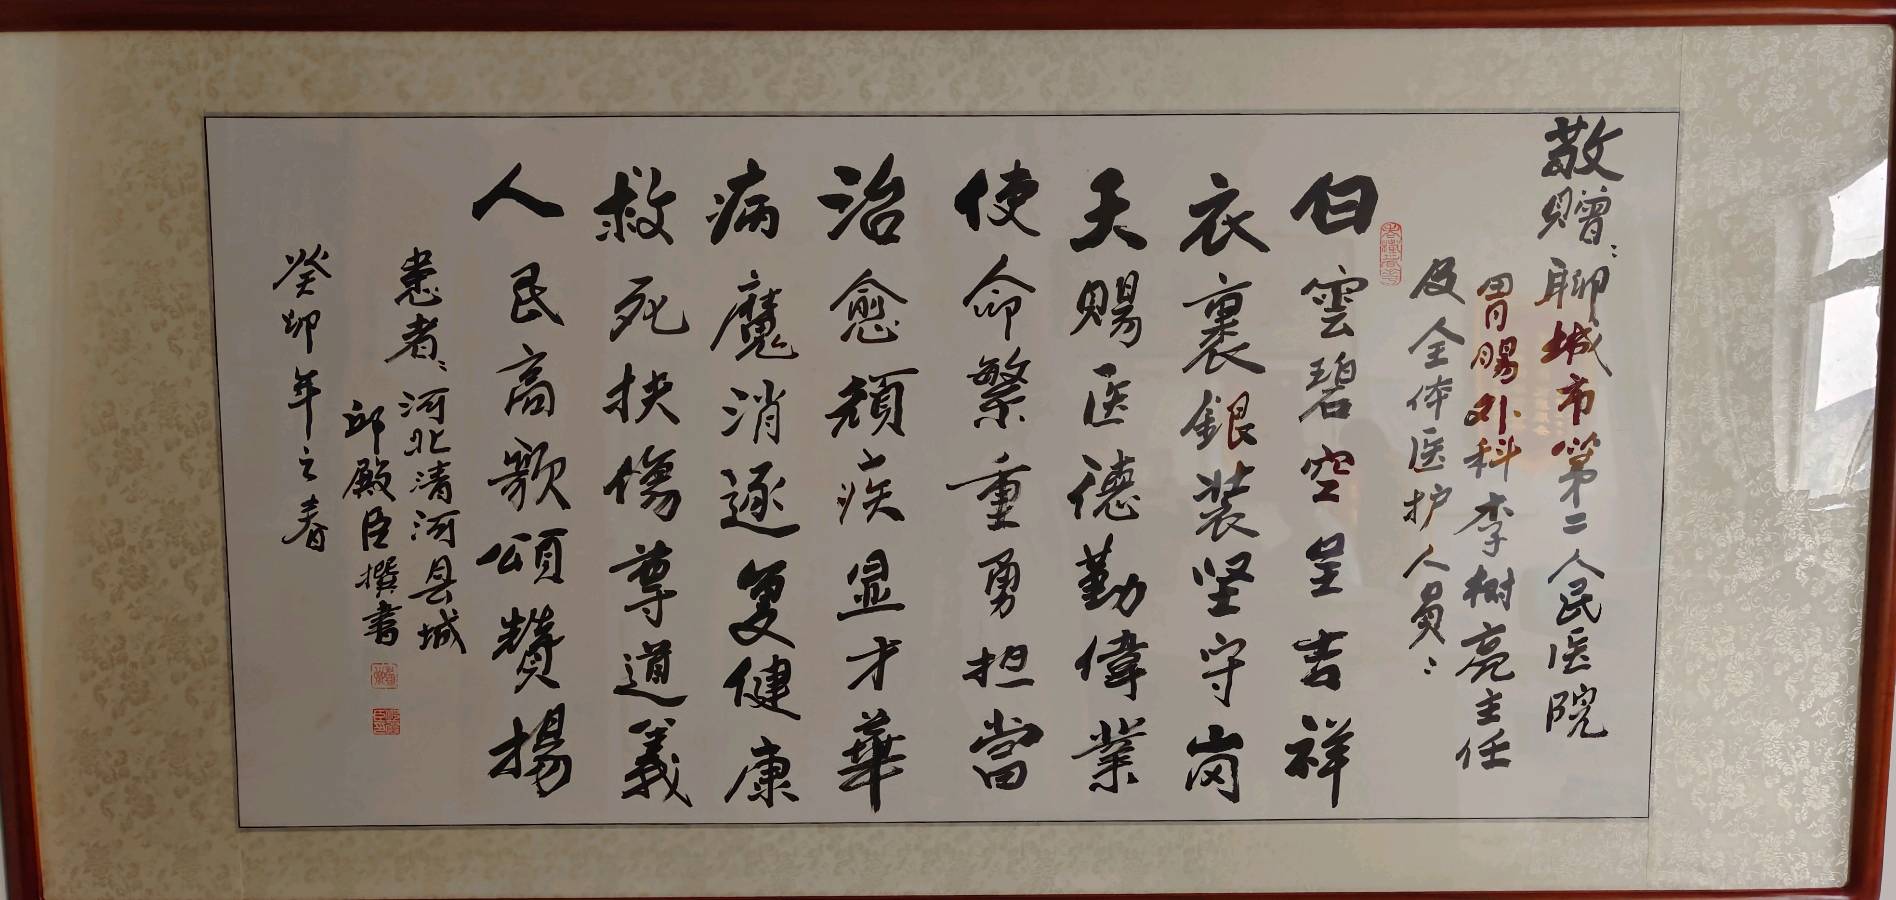 敬赠：聊城市第二人民医院
胃肠外科李树亮主任
及全体医护人员：
白雲碧空呈吉祥
衣裹銀装坚守岗
天赐医德勤偉業
使命繁重勇担當
治愈顽疾显才華
病魔消逐复健康
救死扶傷尊道義
人民高歌頌赞揚
患者：河北清河县城
邱殿臣撰書
癸卯年之春